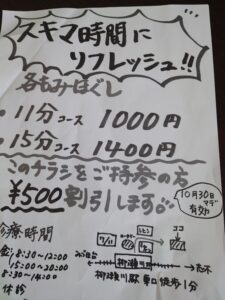 スキマ時間に
リフレッシュ!!
各もみほぐし
・11分コース 1000円
・15分コース 1400円
このチラシをご持参の方
¥500割引します。
10月30日
マデ
有効
診療時間
金 8:30~12:00
15:00~20:00
8:30~14:00
休診
ココ
柳瀬川
志木
柳瀬川駅 東口 徒歩1分